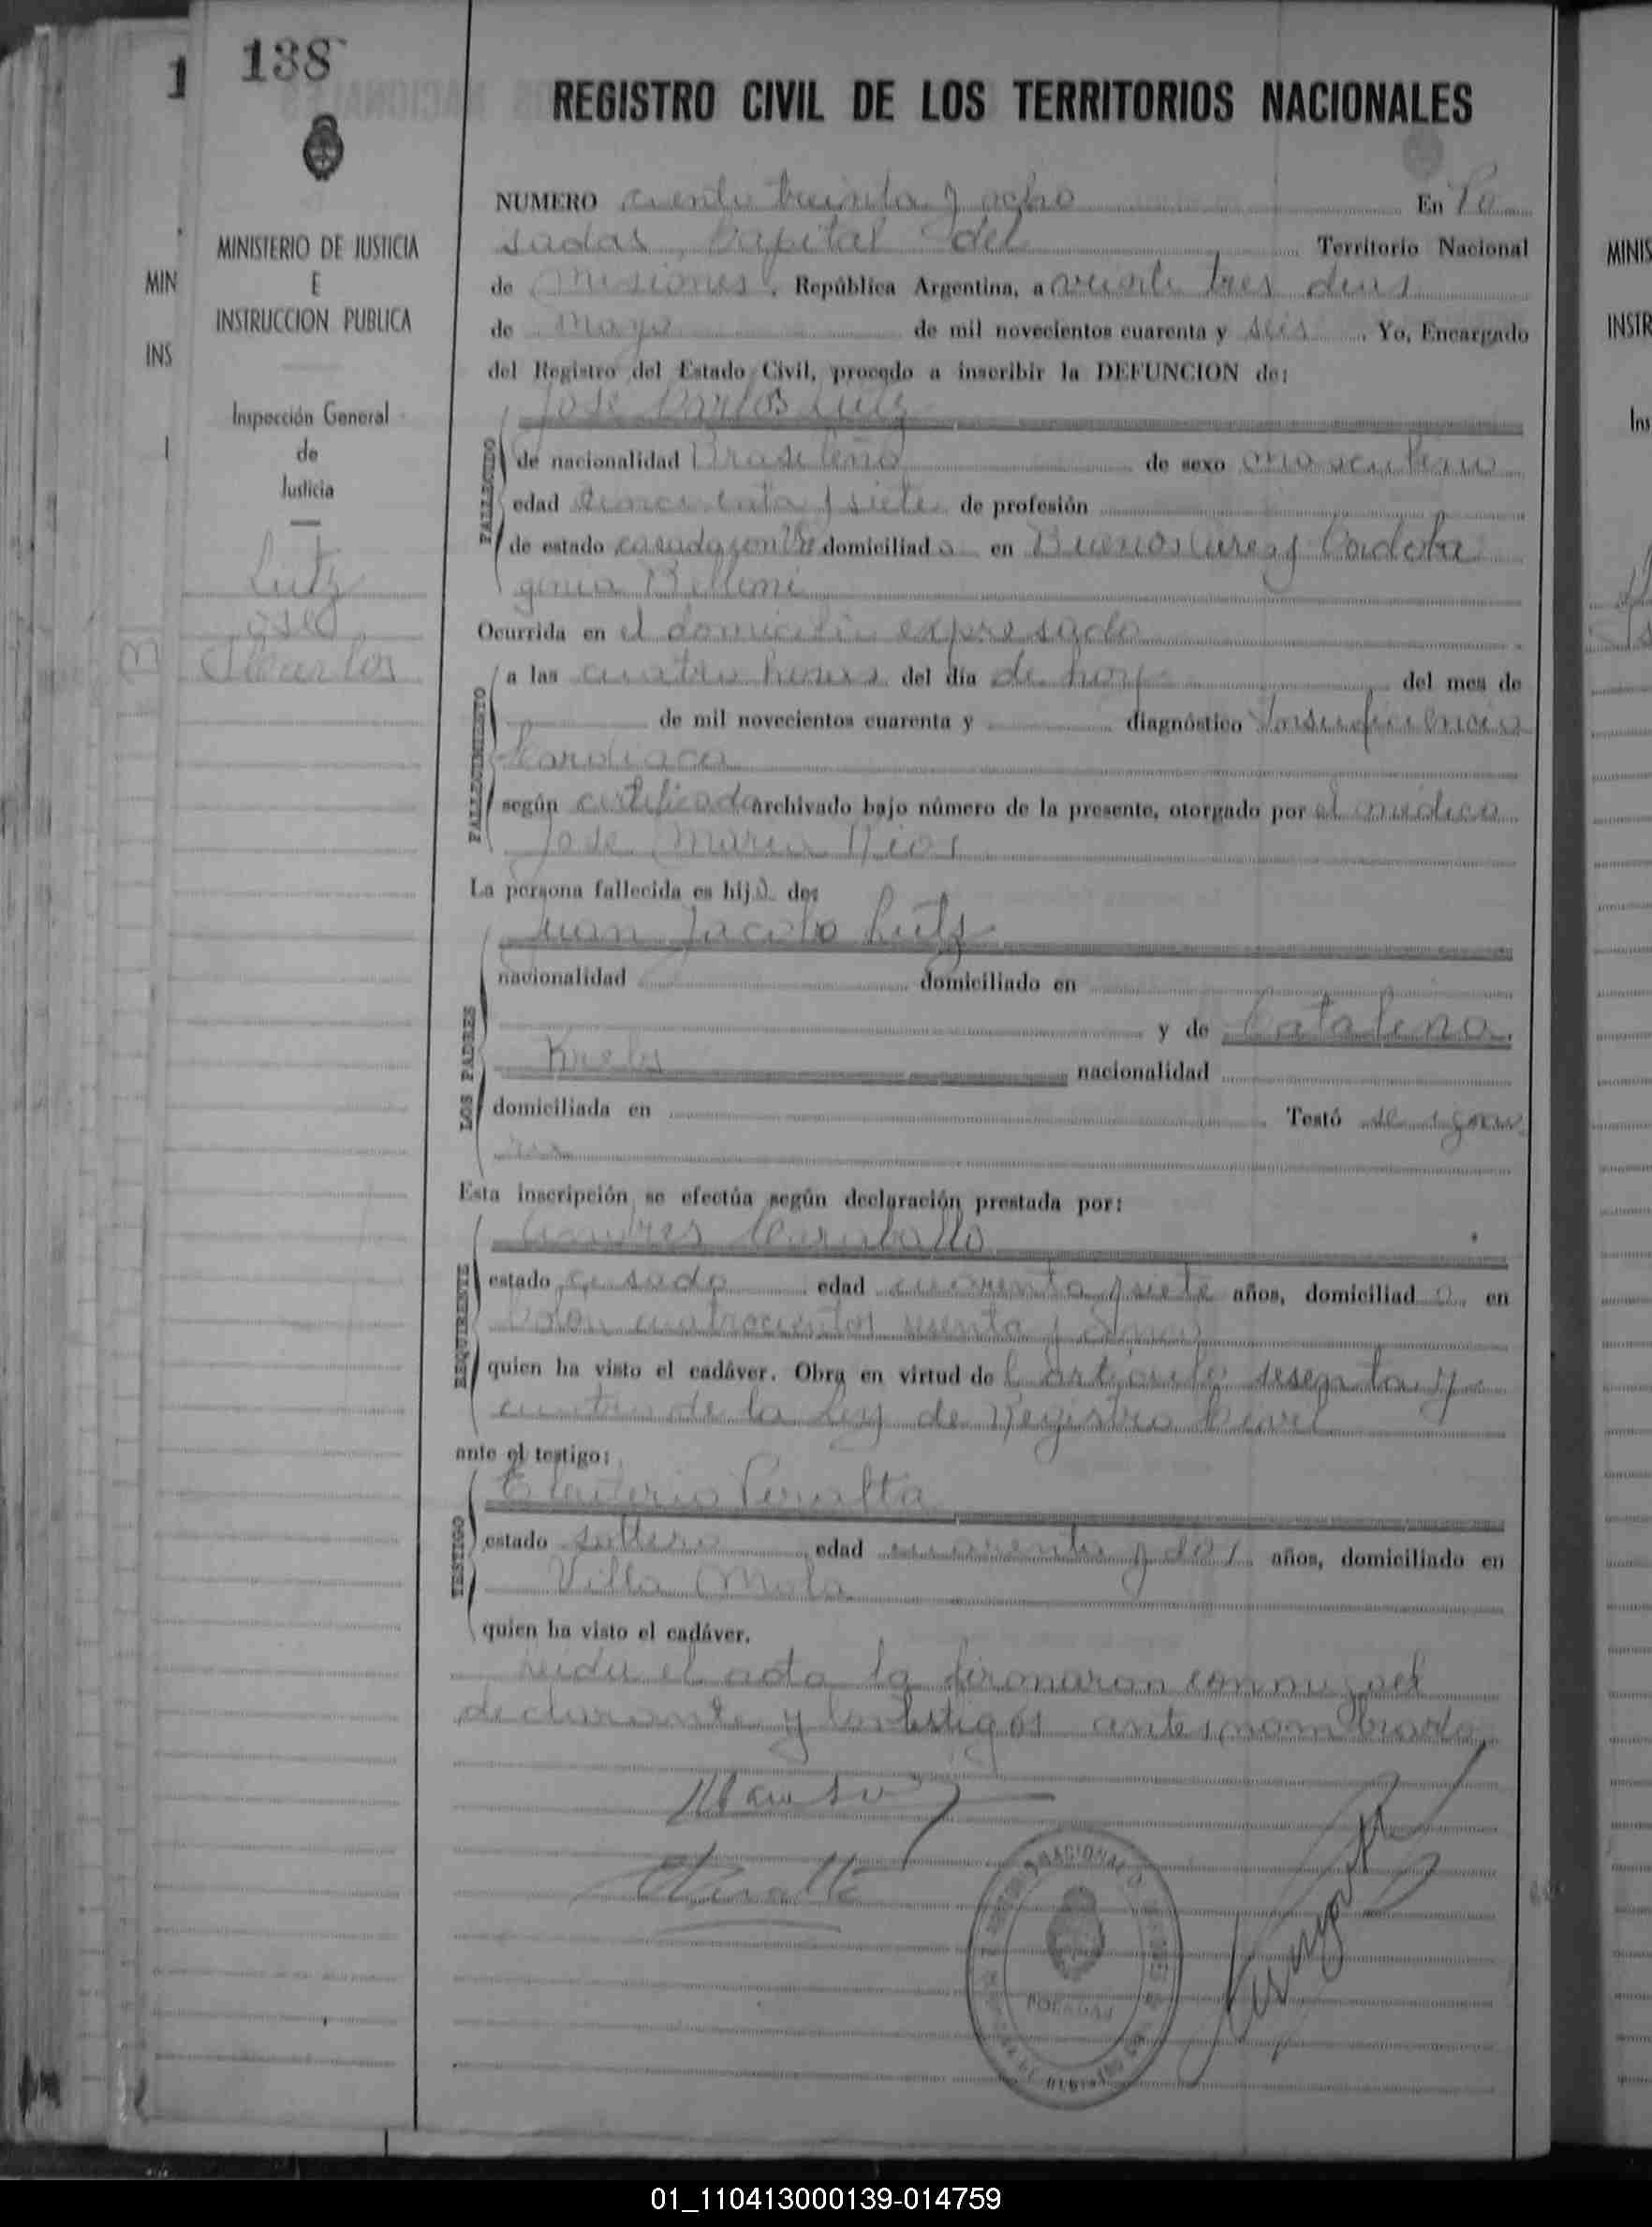 138
1
REGISTRO CIVIL DE LOS TERRITORIOS NACIONALES
MINISTERIO DE JUSTICIA
E
INSTRUCCION PUBLICA
Inspección General
de
Justicia
Lutz
José
Carlos
MIN
INS
I
NUMERO ciento treinta y ocho En Po
sadas, Capital del Territorio Nacional
de Misiones, República Argentina, a veinte tres dias
de Mayo de mil novecientos cuarenta y seis. Yo, Encargado
del Registro del Estado Civil, procedo a inscribir la DEFUNCION de:
José Carlos Lutz
FALLECIDO
de nacionalidad Brasileño de sexo masculino
edad cincuenta y siete de profesión
de estado casado con domiciliado en Buenos Aires y Cordoba
Belloni
Ocurrida en el domicilio expresado
FALLECIMIENTO
a las cuatro horas del día de hoy del mes de
de mil novecientos cuarenta y diagnóstico Insuficiencia
Cardiaca
según certificado archivado bajo número de la presente, otorgado por el médico
José Maria Rios
La persona fallecida es hijo de:
Juan Jacobo Lutz
LOS PADRES
nacionalidad domiciliado en
y de Catalina
nacionalidad
domiciliada en Testó se igno
ra
Esta inscripción se efectúa según declaración prestada por:
Andres Caraballo
REQUIRENTE
estado casado edad cuarenta y siete años, domiciliado en
Colon cuatrocientos sesenta y
quien ha visto el cadáver. Obra en virtud del artículo sesenta y
cuatro de la Ley de Registro Civil
ante el testigo:
Eleuterio Peralta
TESTIGO
estado soltero edad cuarenta y dos años, domiciliado en
Villa Mola
quien ha visto el cadáver.
Leida el acta la firmaron conmigo el
declarante y los testigos antes nombrado
NACIONAL
POSADAS
MINIS
INSTR
Ins
01_110413000139-014759